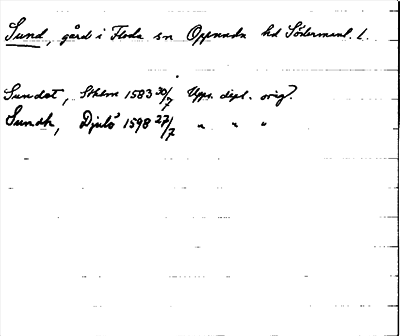 Sund, gård i Floda sn Oppunda hd Söderman. l.
Sundet, Sthlm 1583 30/7 Upps. dipl. orig.
Sundh, Djulö 1598 27/7 " " "